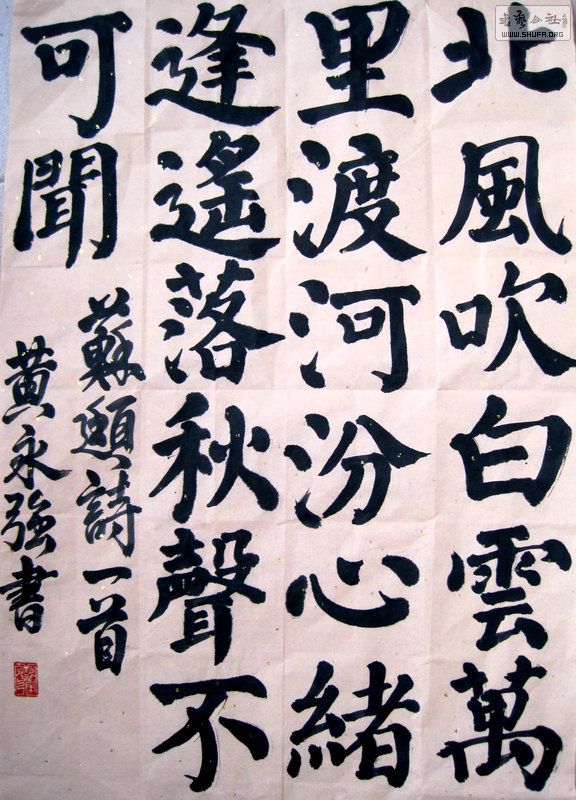 北風吹白雲萬
里渡河汾心緒
逢遙落秋聲不
可聞
蘇頲詩一首
黄永強書
書藝公社
WWW.SHUFA.ORG